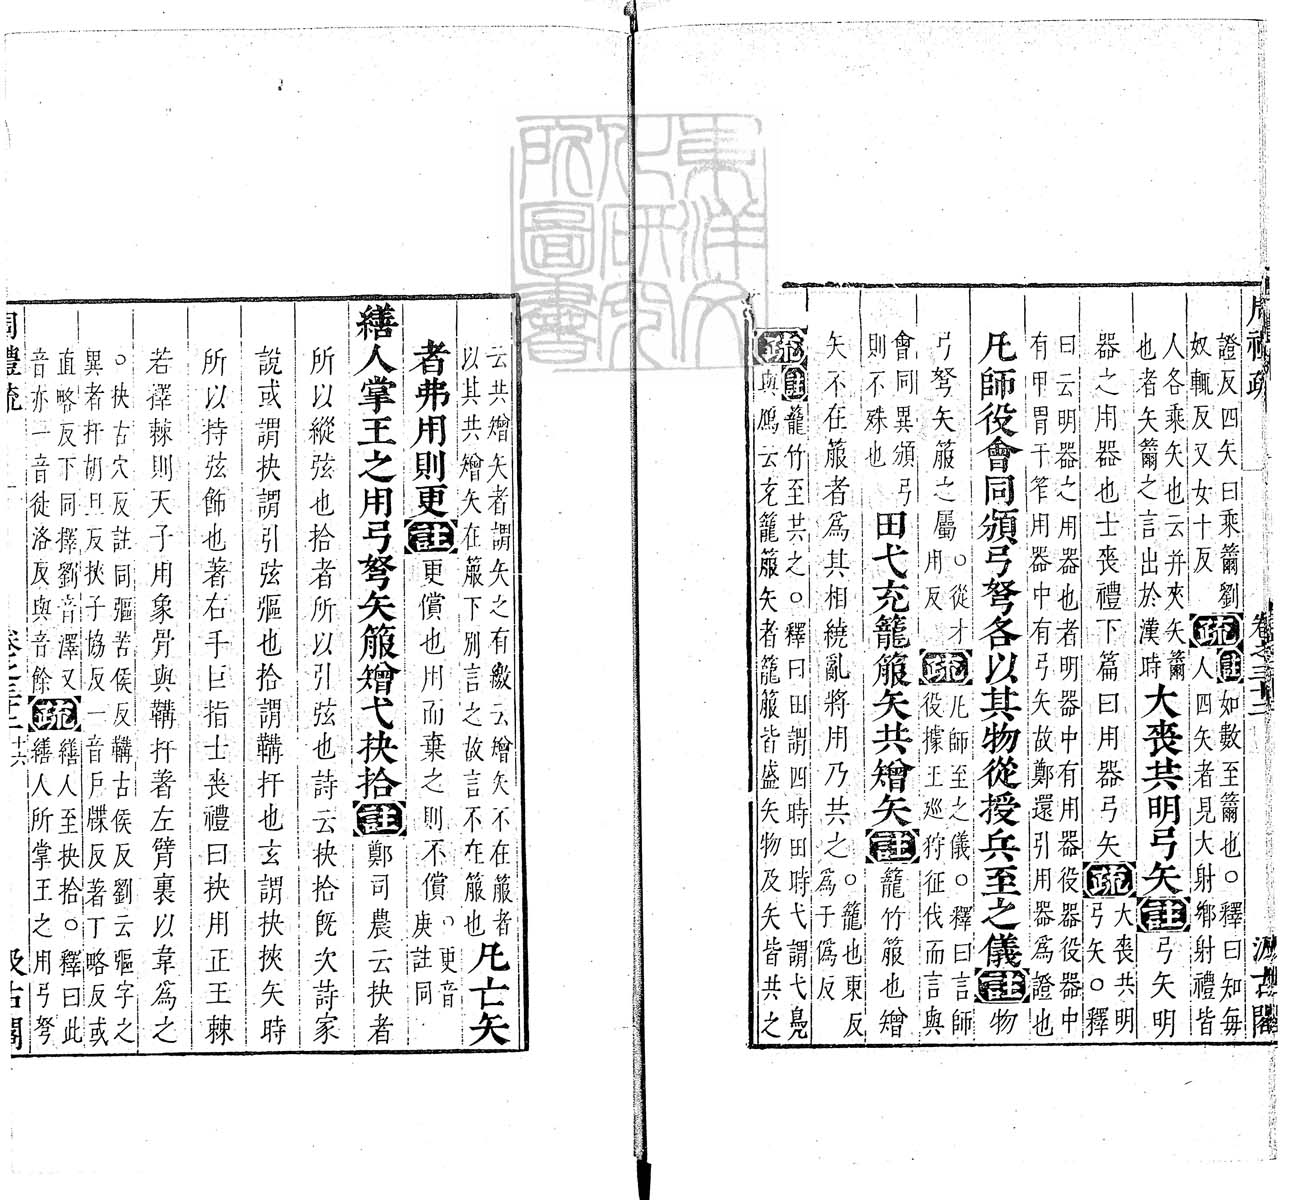 周禮疏 卷之三十二 汲古閣
證反四矢曰乘籥劉
奴輒反又女十反
疏
註如數至籥也○釋曰知每
人四矢者見大射鄉射禮皆
人各乘矢也云并夾矢籥
也者矢籥之言出於漢時
大喪共明弓矢註弓矢明
器之用器也士喪禮下篇曰用器弓矢疏
大喪共明
弓矢○釋
曰云明器之用器也者明器中有用器役器役器中
有甲冑干笮用器中有弓矢故鄭還引用器爲證也
凡師役會同頒弓弩各以其物從授兵至之儀註物
弓弩矢箙之屬
○從才
用反
疏
凡師至之儀○釋曰言師
役據王巡狩征伐而言與
會同異頒弓
則不殊也
田弋充籠箙矢共矰矢註籠竹箙也矰
矢不在箙者爲其相繞亂將用乃共之
○籠也東反
爲于僞反
疏
註籠竹至共之○釋曰田謂四時田時弋謂弋鳧
與鴈云充籠箙矢者籠箙皆盛矢物及矢皆共之
云共矰矢者謂矢之有繳云矰矢不在箙者
以其共矰矢在箙下別言之故言不在箙也
凡亡矢
者弗用則更註更償也用而棄之則不償
○更音
庚註同
繕人掌王之用弓弩矢箙矰弋抉拾註鄭司農云抉者
所以縱弦也拾者所以引弦也詩云抉拾旣次詩家
說或謂抉謂引弦彄也拾謂鞲扞也玄謂抉挾矢時
所以持弦飾也著右手巨指士喪禮曰抉用正王棘
若擇棘則天子用象骨與鞲扞著左臂裏以韋爲之
○抉古穴反註同彄苦侯反鞲古侯反劉云彄字之
異者扞胡旦反挾子協反一音戶牒反著丁略反或
直略反下同擇劉音澤又
音亦一音徒洛反與音餘
疏
繕人至抉拾○釋曰此
繕人所掌王之用弓弩
周禮疏 卷之三十二 十六 汲古閣
東洋文化研究所圖書